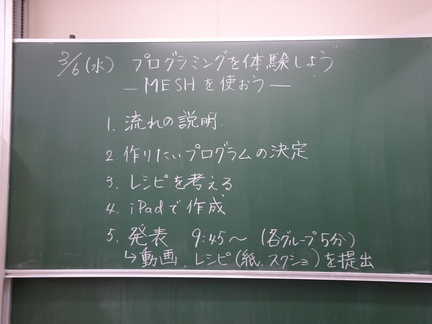 3/6(水) プログラミングを体験しよう
― MESHを使おう ―
1. 流れの説明
2. 作りたいプログラムの決定
3. レシピを考える
4. iPadで作成
5. 発表 9:45～ (各グループ5分)
↳動画、レシピ(紙、スクショ)を提出